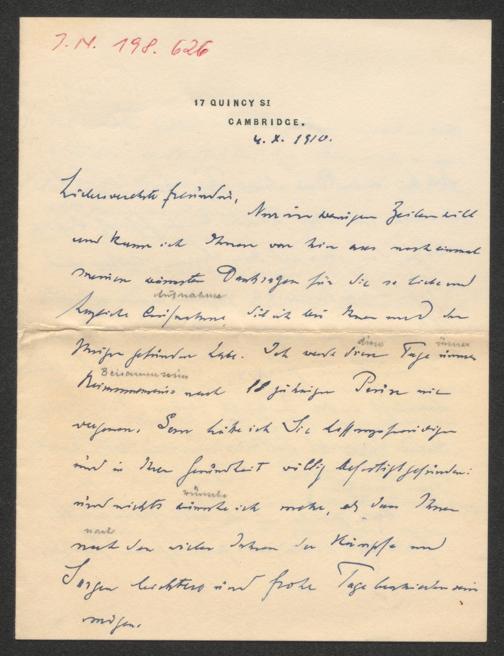 I.N. 198.626
17 QUINCY St
CAMBRIDGE.
4. X. 1910.
Liebe verehrte Freundin,
Nur in wenigen Zeilen will
und kann ich Ihnen von hier aus noch einmal
meinen wärmsten Danksagen für die so liebe und
Aufnahme
herzliche Aufnahme, die ich bei Ihnen und den
Ihrigen gefunden habe. Ich werde diese Tage
diese immer
Beisammensein
nach 18 jähriger Pause nie
vergessen. Gern hätte ich Sie hoffnungsfreudiger
und in Ihrer Gesundheit völlig befestigt gefunden:
wünsche
und nichts wünschte ich mehr, als dass Ihnen
nach
nach den vielen Jahren der Kämpfe und
Sorgen leichtere und frohe Tage beschieden sein
mögen.